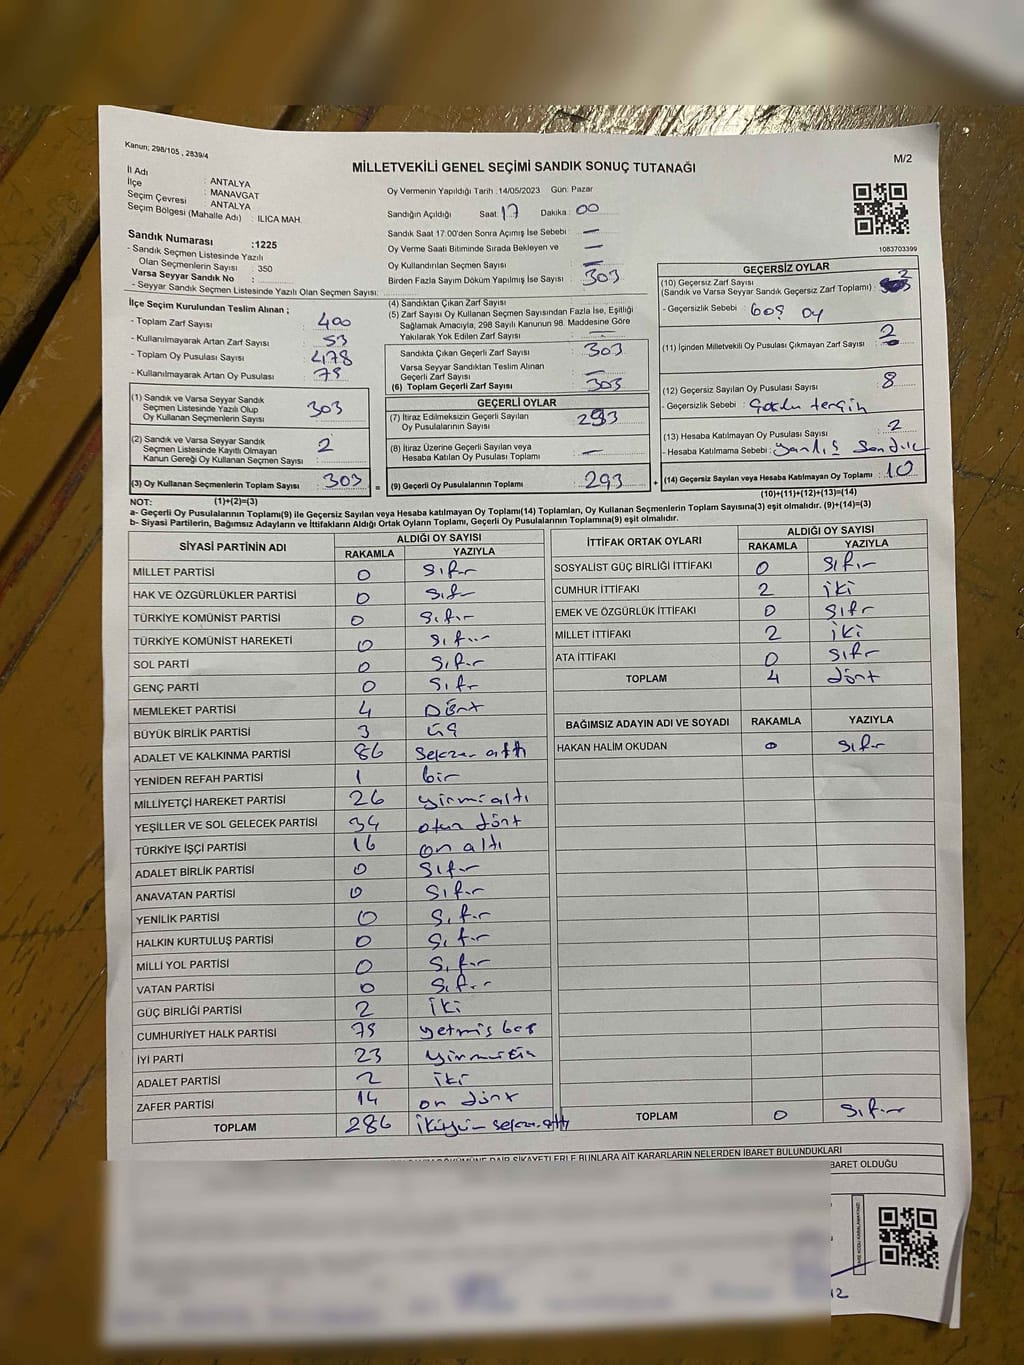 Kanun; 298/105 , 2839/4
M/2
MİLLETVEKİLİ GENEL SEÇİMİ SANDIK SONUÇ TUTANAĞI
İl Adı : ANTALYA
İlçe : MANAVGAT
Seçim Çevresi : ANTALYA
Seçim Bölgesi (Mahalle Adı) : ILICA MAH.
Sandık Numarası :1225
- Sandık Seçmen Listesinde Yazılı
Olan Seçmenlerin Sayısı : 350
Varsa Seyyar Sandık No :
- Seyyar Sandık Seçmen Listesinde Yazılı Olan Seçmen Sayısı:
Oy Vermenin Yapıldığı Tarih :14/05/2023 Gün: Pazar
Sandığın Açıldığı Saat: 17 Dakika : 00
Sandık Saat 17:00'den Sonra Açımış İse Sebebi : —
Oy Verme Saati Bitiminde Sırada Bekleyen ve : —
Oy Kullandırılan Seçmen Sayısı : —
Birden Fazla Sayım Döküm Yapılmış İse Sayısı : 303
1083703399
İlçe Seçim Kurulundan Teslim Alınan ;
- Toplam Zarf Sayısı : 400
- Kullanılmayarak Artan Zarf Sayısı : 53
- Toplam Oy Pusulası Sayısı : 478
- Kullanılmayarak Artan Oy Pusulası : 75
(1) Sandık ve Varsa Seyyar Sandık
Seçmen Listesinde Yazılı Olup
Oy Kullanan Seçmenlerin Sayısı : 303
(2) Sandık ve Varsa Seyyar Sandık
Seçmen Listesinde Kayıtlı Olmayan
Kanun Gereği Oy Kullanan Seçmen Sayısı : 2
(3) Oy Kullanan Seçmenlerin Toplam Sayısı : 303
(1)+(2)=(3)
(4) Sandıktan Çıkan Zarf Sayısı :
(5) Zarf Sayısı Oy Kullanan Seçmen Sayısından Fazla İse, Eşitliği
Sağlamak Amacıyla, 298 Sayılı Kanunun 98. Maddesine Göre
Yakılarak Yok Edilen Zarf Sayısı : —
Sandıkta Çıkan Geçerli Zarf Sayısı : 303
Varsa Seyyar Sandıktan Teslim Alınan
Geçerli Zarf Sayısı : —
(6) Toplam Geçerli Zarf Sayısı : 303
GEÇERLİ OYLAR
(7) İtiraz Edilmeksizin Geçerli Sayılan
Oy Pusulalarının Sayısı : 293
(8) İtiraz Üzerine Geçerli Sayılan veya
Hesaba Katılan Oy Pusulası Toplamı : —
= (9) Geçerli Oy Pusulalarının Toplamı : 293
GEÇERSİZ OYLAR
(10) Geçersiz Zarf Sayısı
(Sandık ve Varsa Seyyar Sandık Geçersiz Zarf Toplamı) : 2
- Geçersizlik Sebebi : boş oy
(11) İçinden Milletvekili Oy Pusulası Çıkmayan Zarf Sayısı : 2
(12) Geçersiz Sayılan Oy Pusulası Sayısı : 8
- Geçersizlik Sebebi :
(13) Hesaba Katılmayan Oy Pusulası Sayısı : 2
- Hesaba Katılmama Sebebi : yanlış sandık
+ (14) Geçersiz Sayılan veya Hesaba Katılmayan Oy Toplamı : 10
(10)+(11)+(12)+(13)=(14)
NOT:
a- Geçerli Oy Pusulalarının Toplamı(9) ile Geçersiz Sayılan veya Hesaba katılmayan Oy Toplamı(14) Toplamları, Oy Kullanan Seçmenlerin Toplam Sayısına(3) eşit olmalıdır. (9)+(14)=(3)
b- Siyasi Partilerin, Bağımsız Adayların ve İttifakların Aldığı Ortak Oyların Toplamı, Geçerli Oy Pusulalarının Toplamına(9) eşit olmalıdır.
SİYASİ PARTİNİN ADI ALDIĞI OY SAYISI
RAKAMLA YAZIYLA
MİLLET PARTİSİ 0 sıfır
HAK VE ÖZGÜRLÜKLER PARTİSİ 0 sıfır
TÜRKİYE KOMÜNİST PARTİSİ 0 sıfır
TÜRKİYE KOMÜNİST HAREKETİ 0 sıfır
SOL PARTİ 0 sıfır
GENÇ PARTİ 0 sıfır
MEMLEKET PARTİSİ 4 Dört
BÜYÜK BİRLİK PARTİSİ 3 üç
ADALET VE KALKINMA PARTİSİ 86 seksen altı
YENİDEN REFAH PARTİSİ 1 bir
MİLLİYETÇİ HAREKET PARTİSİ 26 yirmi altı
YEŞİLLER VE SOL GELECEK PARTİSİ 34 otuz dört
TÜRKİYE İŞÇİ PARTİSİ 16 on altı
ADALET BİRLİK PARTİSİ 0 sıfır
ANAVATAN PARTİSİ 0 sıfır
YENİLİK PARTİSİ 0 sıfır
HALKIN KURTULUŞ PARTİSİ 0 sıfır
MİLLİ YOL PARTİSİ 0 sıfır
VATAN PARTİSİ 0 sıfır
GÜÇ BİRLİĞİ PARTİSİ 2 iki
CUMHURİYET HALK PARTİSİ 75 yetmiş beş
İYİ PARTİ 23 yirmi üç
ADALET PARTİSİ 2 iki
ZAFER PARTİSİ 14 on dört
TOPLAM 286 ikiyüz seksen altı
İTTİFAK ORTAK OYLARI ALDIĞI OY SAYISI
RAKAMLA YAZIYLA
SOSYALİST GÜÇ BİRLİĞİ İTTİFAKI 0 sıfır
CUMHUR İTTİFAKI 2 iki
EMEK VE ÖZGÜRLÜK İTTİFAKI 0 sıfır
MİLLET İTTİFAKI 2 iki
ATA İTTİFAKI 0 sıfır
TOPLAM 4 dört
BAĞIMSIZ ADAYIN ADI VE SOYADI RAKAMLA YAZIYLA
HAKAN HALİM OKUDAN 0 sıfır
TOPLAM 0 sıfır
DAİR ŞİKAYETLERLE BUNLARA AİT KARARLARIN NELERDEN İBARET BULUNDUKLARI
BARET OLDUĞU
12